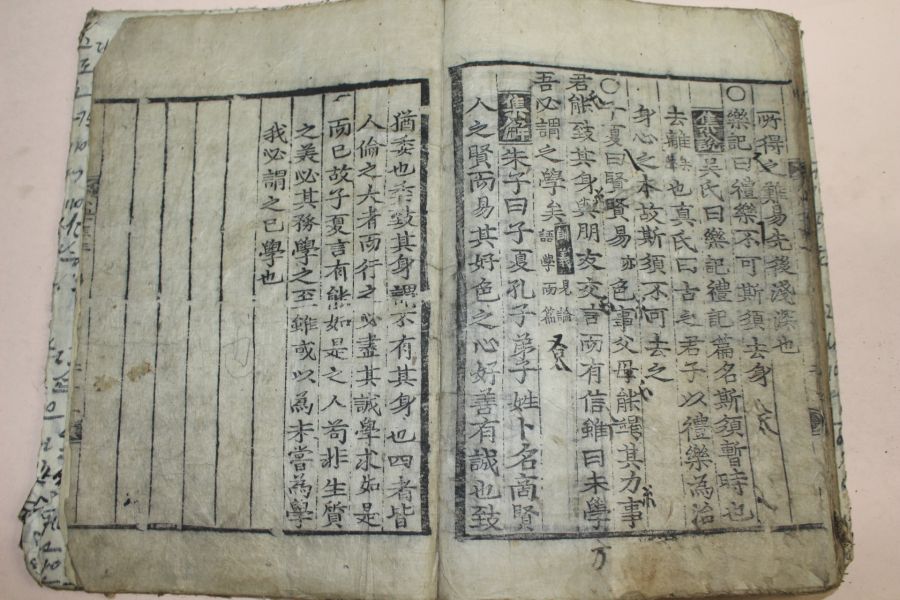 所得之難易先後淺深也
○樂記曰禮樂不可斯須去身
集說吳氏曰樂記禮記篇名斯須暫時也
去離也真氏曰古之君子以禮樂為治
身心之本故斯須不可去之
○子夏曰賢賢易色事父母能竭其力事
君能致其身與朋友交言而有信雖曰未學
吾必謂之學矣
見論
語學而篇
集解朱子曰子夏孔子弟子姓卜名商賢
人之賢而易其好色之心好善有誠也致
猶委也委致其身謂不有其身也四者皆
人倫之大者而行之必盡其誠學求如是
而已故子夏言有能如是之人苟非生質
之美必其務學之至雖或以為未嘗為學
我必謂之已學也